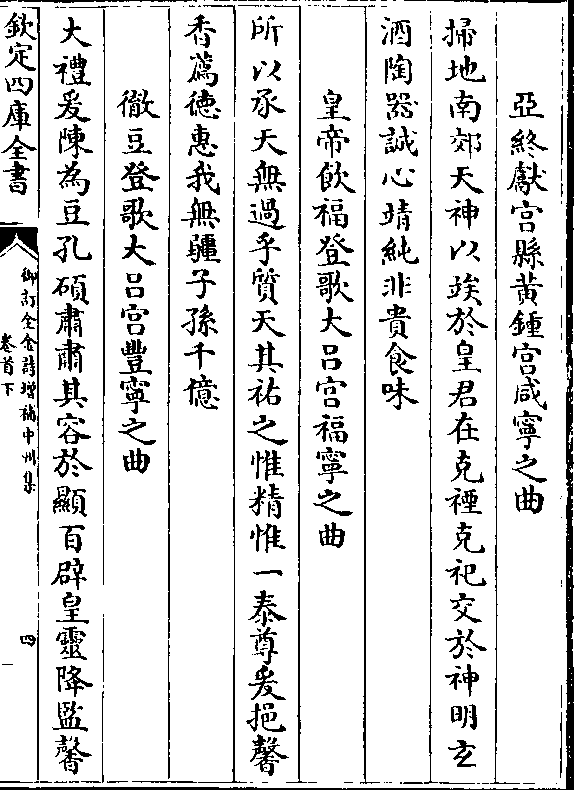 亞終獻宫縣黄鍾宫咸寧之曲
掃地南郊天神以竢於皇君在克禋克祀交於神明玄
酒陶器誠心靖純非貴食味
皇帝飲福登歌大吕宫福寧之曲
所以承天無過乎質天其祐之惟精惟一泰尊爰挹馨
香薦德惠我無疆子孫千億
徹豆登歌大吕宫豐寧之曲
大禮爰陳為豆孔碩肅肅其容於顯百辟皇靈降監馨
欽定四庫全書
御訂全金詩增補中州集
卷首下
四